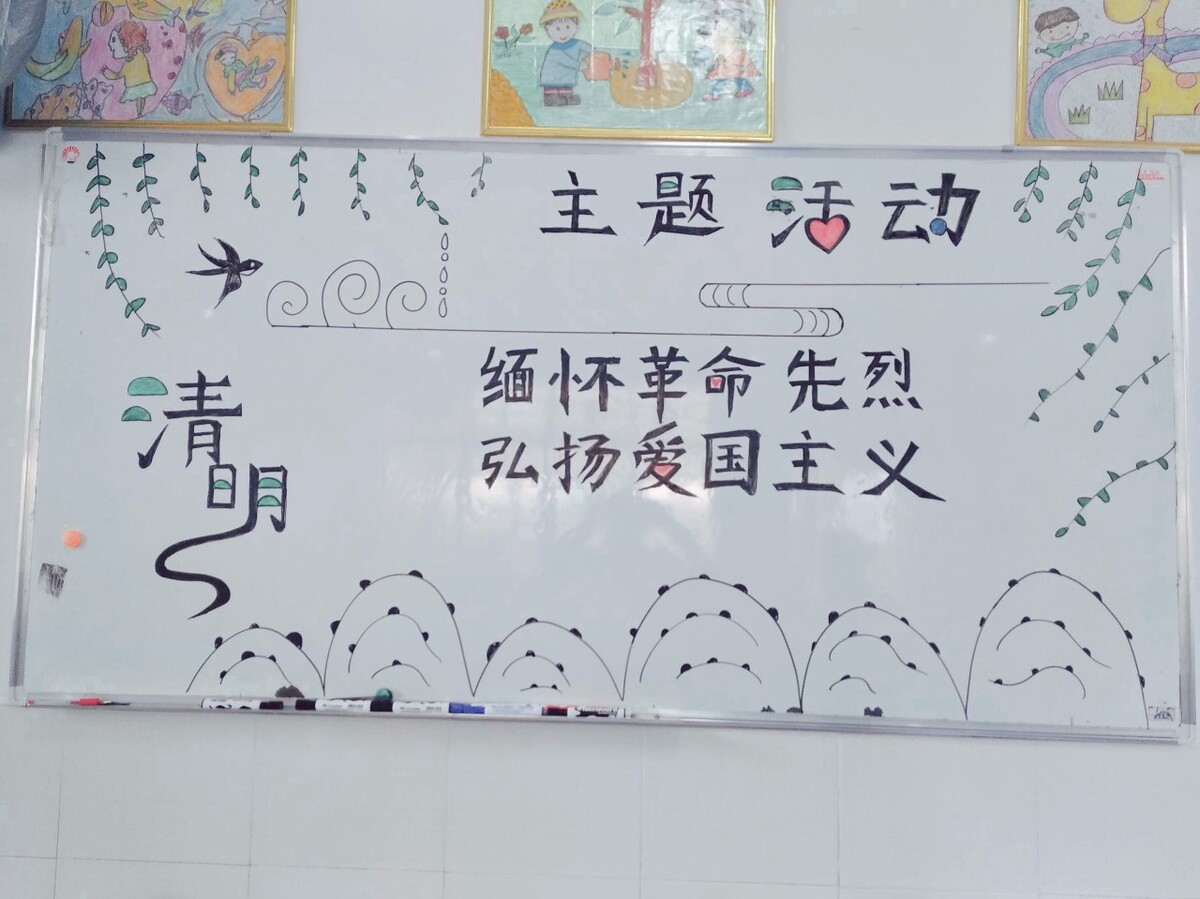 主题活动
清明
缅怀革命先烈
弘扬爱国主义